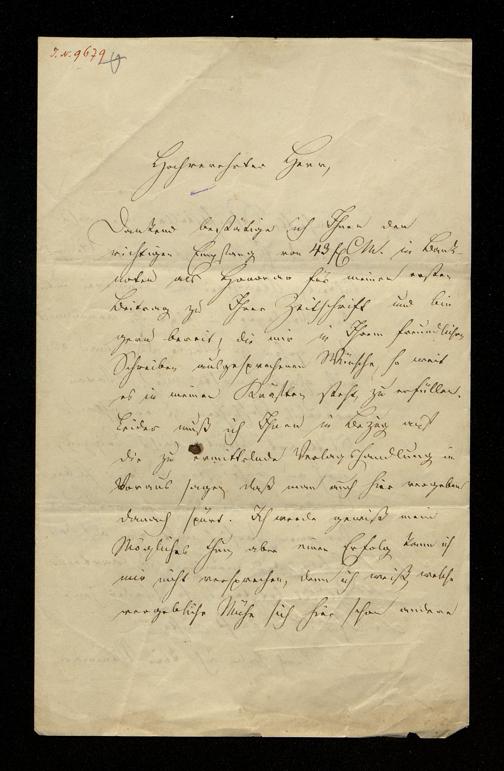 I. N. 9679
Hochverehrter Herr,
Dankend bestätige ich Ihnen den
richtigen Empfang von 43 f CM. in Bank-
noten als Honorar für meinen ersten
Beitrag zu Ihrer Zeitschrift und bin
gern bereit, die mir in Ihrem freundlichen
Schreiben ausgesprochenen Wünsche, so weit
es in meinen Kräften steht, zu erfüllen.
Leider muß ich Ihnen in Bezug auf
die zu ermittelnde Verlagshandlung im
Voraus sagen, daß man auch hier vergebens
danach spürt. Ich werde gewiß mein
Mögliches thun, aber einen Erfolg kann ich
mir nicht versprechen, denn ich weiß, welche
vergebliche Mühe sich hier schon andere